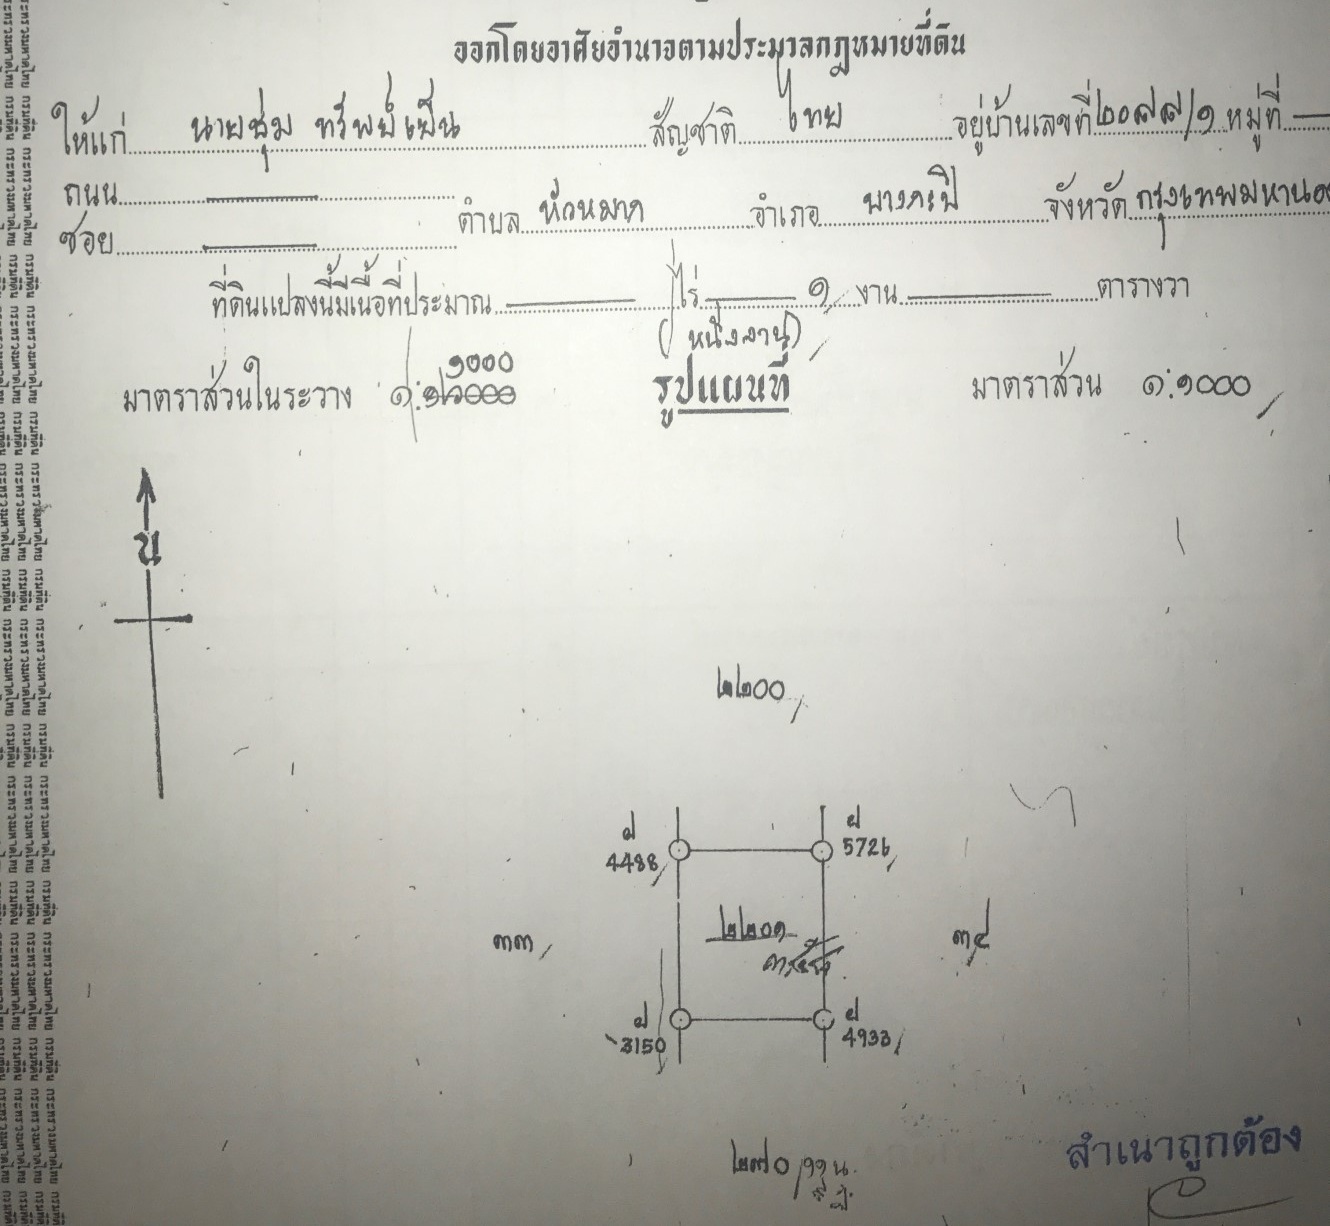 ออกโดยอาศัยอำนาจตามประมวลกฎหมายที่ดิน
ให้แก่ นายชุ่ม ทรัพย์เย็น สัญชาติ ไทย อยู่บ้านเลขที่ ๒๐๙๙/๑ หมู่ที่ —
ถนน —
ซอย — ตำบล หัวหมาก อำเภอ บางกะปิ จังหวัด กรุงเทพมหานคร
ที่ดินแปลงนี้มีเนื้อที่ประมาณ — ไร่ — ๑ งาน — ตารางวา
(หนึ่งงาน)
๑๐๐๐
มาตราส่วนในระวาง ๑: รูปแผนที่ มาตราส่วน ๑:๑๐๐๐
น
๒๒๐๐
ฝ ฝ
4488 5726
๒๒๐๑
๓๓ ๓๔
ฝ ฝ
3150 4933
สำเนาถูกต้อง
กรมที่ดิน กระทรวงมหาดไทย